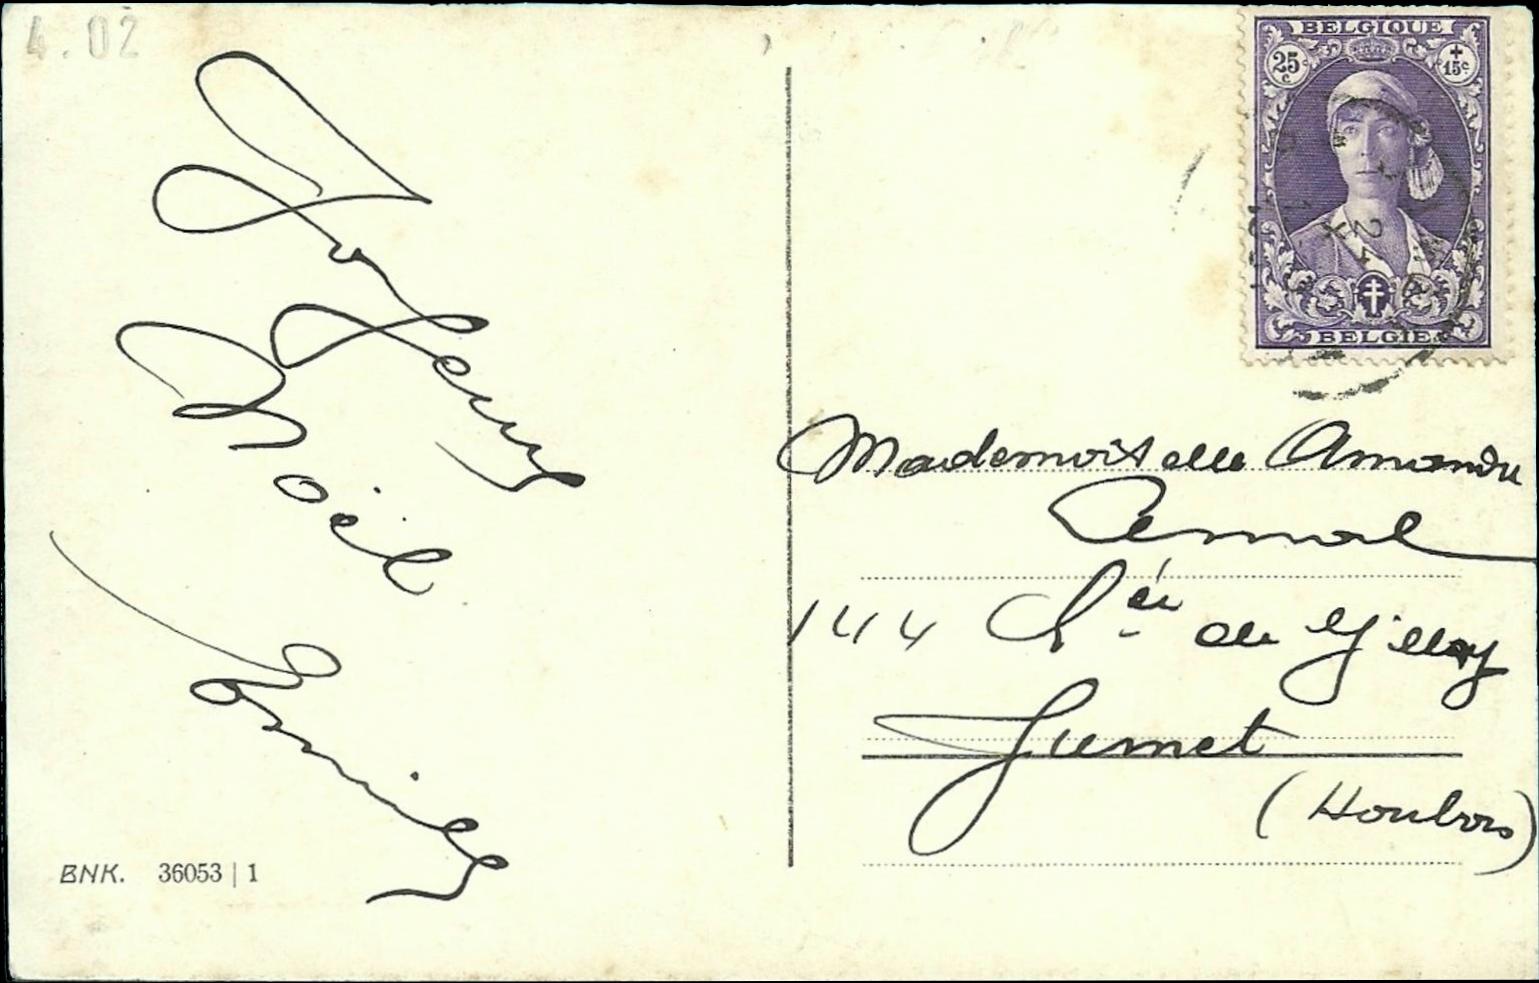 4.02
Joyeux
Noël
BNK. 36053 | 1
BELGIQUE
25 c
+ 15 c
BELGIË
Mademoiselle Amanda
144 Chée de Gilly
Jumet
(Houbois)